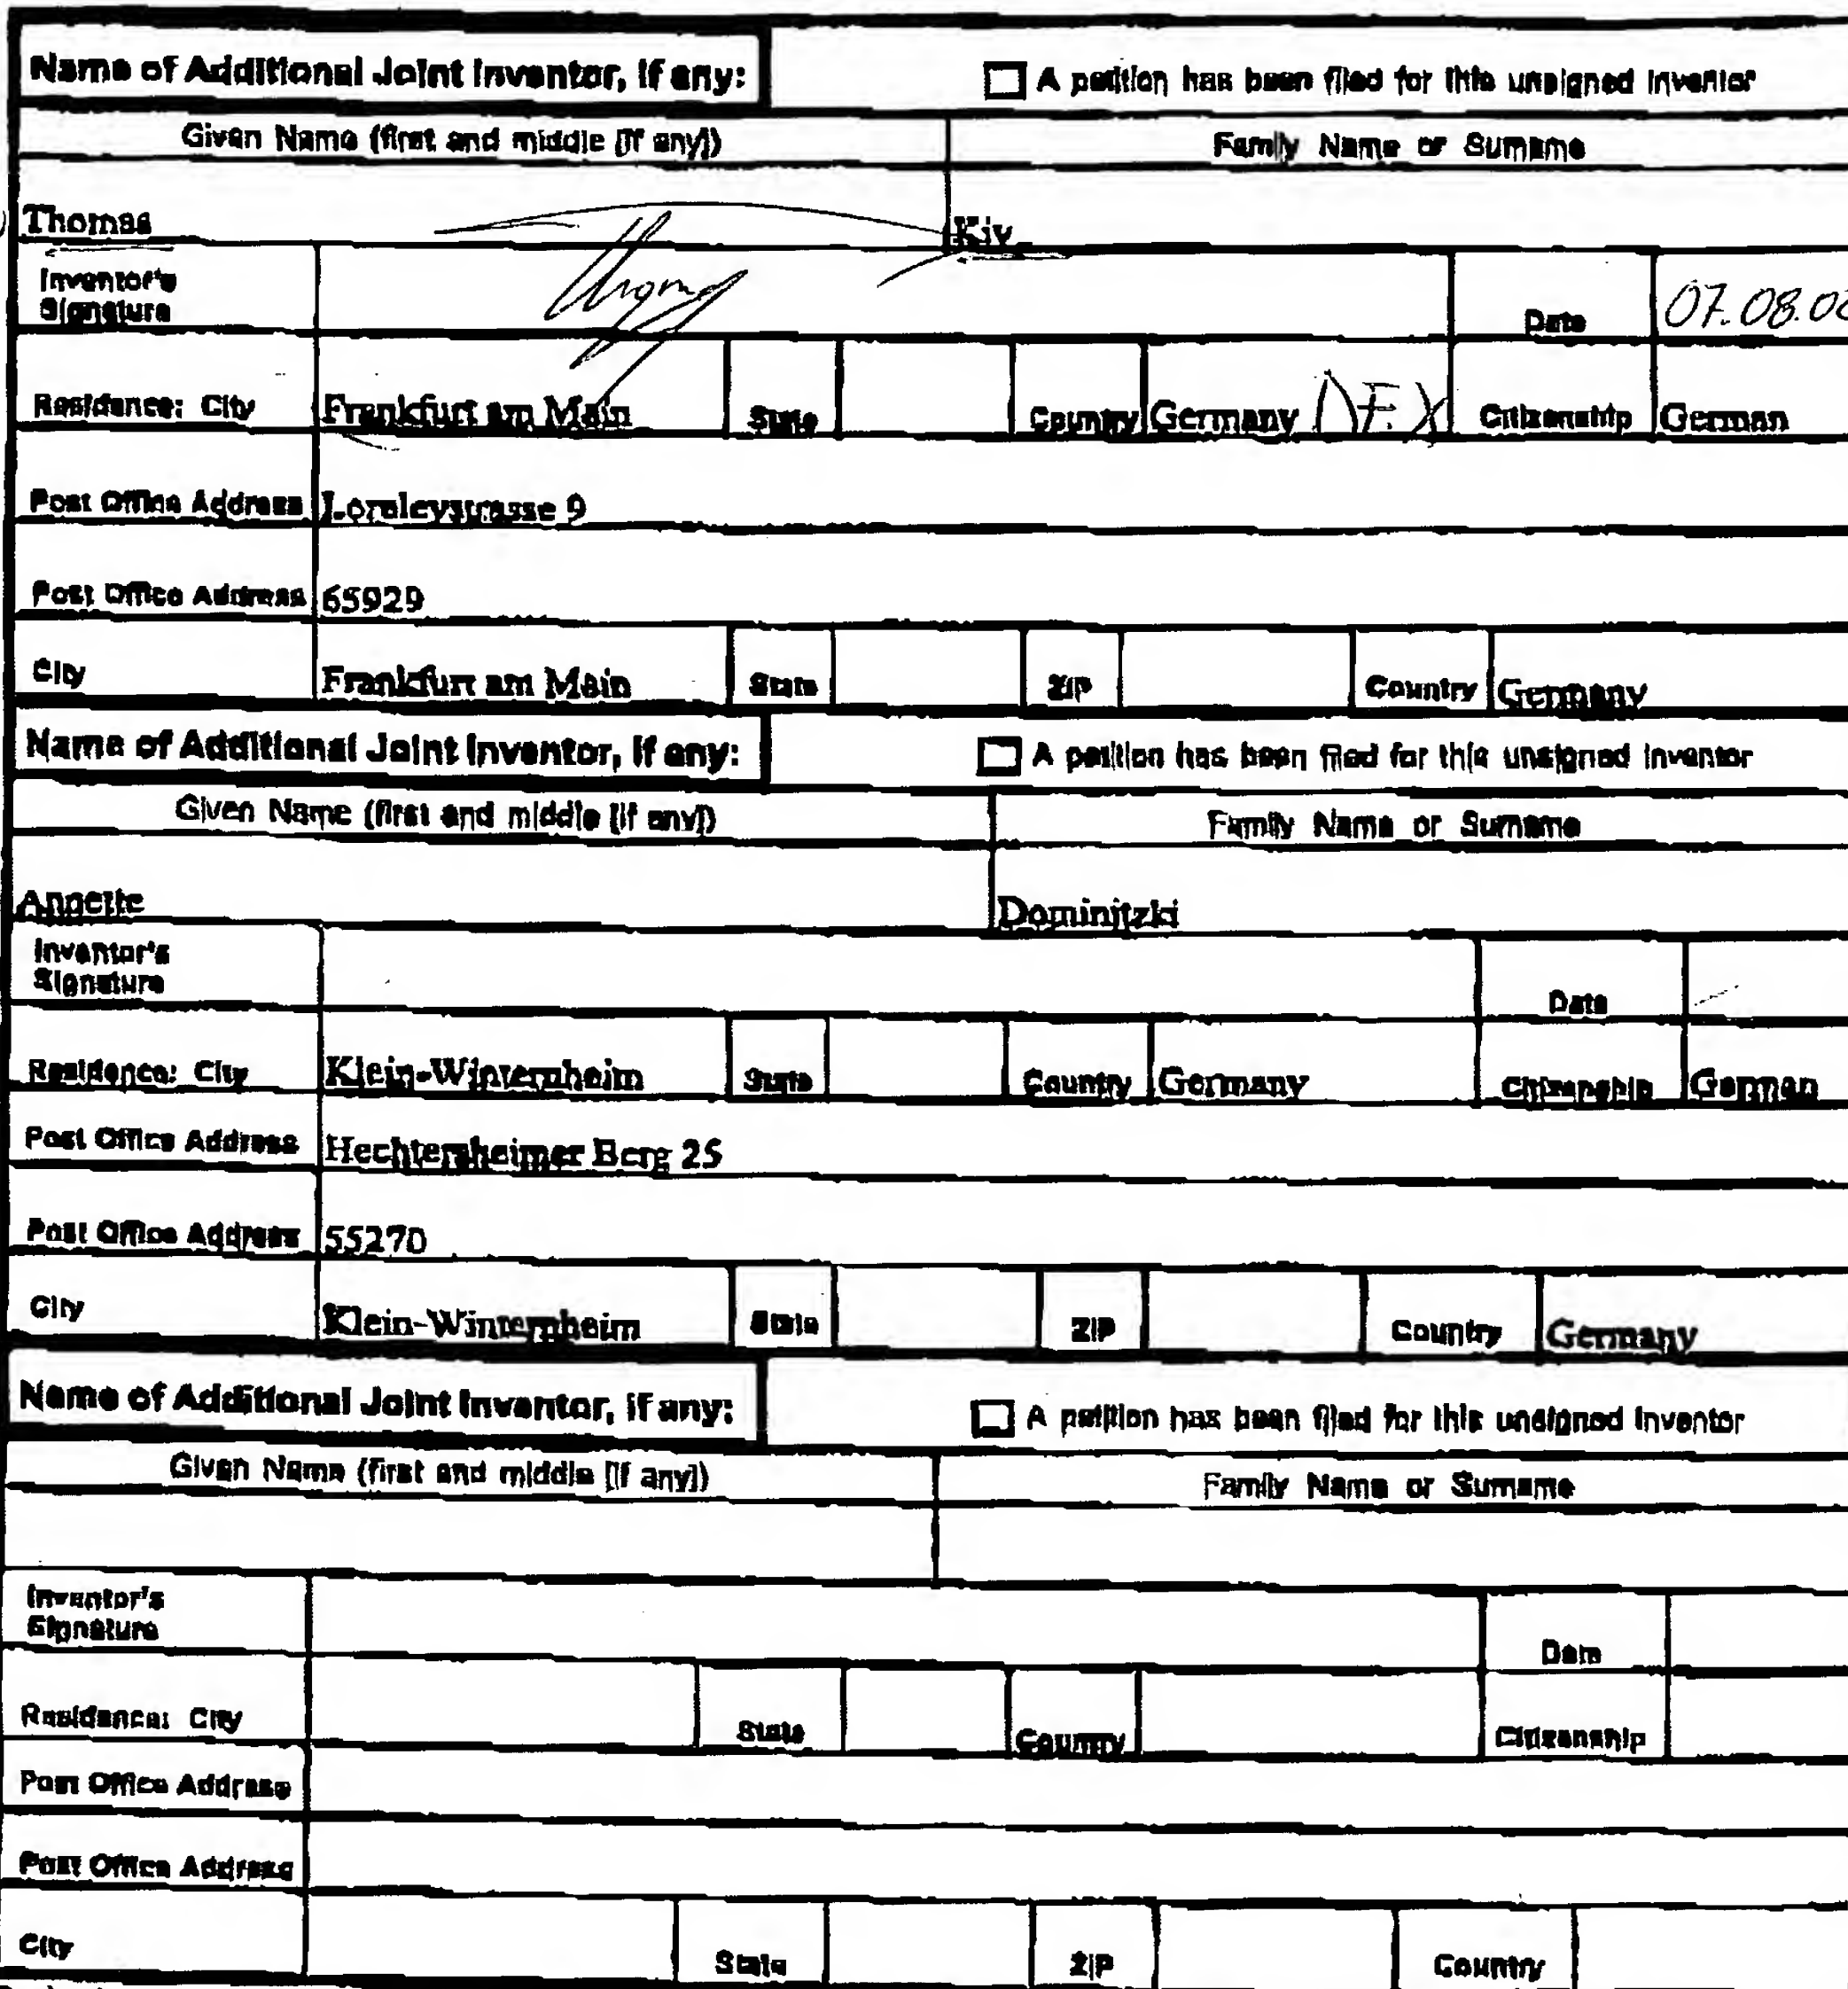 Name of Additional Joint Inventor, if any: ☐ A petition has been filed for this unsigned inventor
Given Name (first and middle [if any]) Family Name or Surname
Thomas Kiy
Inventor's Signature Date 07.08.02
Residence: City Frankfurt am Main State Country Germany DEX Citizenship German
Post Office Address Loreleystrasse 9
Post Office Address 65929
City Frankfurt am Main State ZIP Country Germany
Name of Additional Joint Inventor, if any: ☐ A petition has been filed for this unsigned inventor
Given Name (first and middle [if any]) Family Name or Surname
Annette Dominitzki
Inventor's Signature Date
Residence: City Klein-Winternheim State Country Germany Citizenship German
Post Office Address Hechtersheimer Berg 25
Post Office Address 55270
City Klein-Winternheim State ZIP Country Germany
Name of Additional Joint Inventor, if any: ☐ A petition has been filed for this unsigned inventor
Given Name (first and middle [if any]) Family Name or Surname
Inventor's Signature Date
Residence: City State Country Citizenship
Post Office Address
Post Office Address
City State ZIP Country